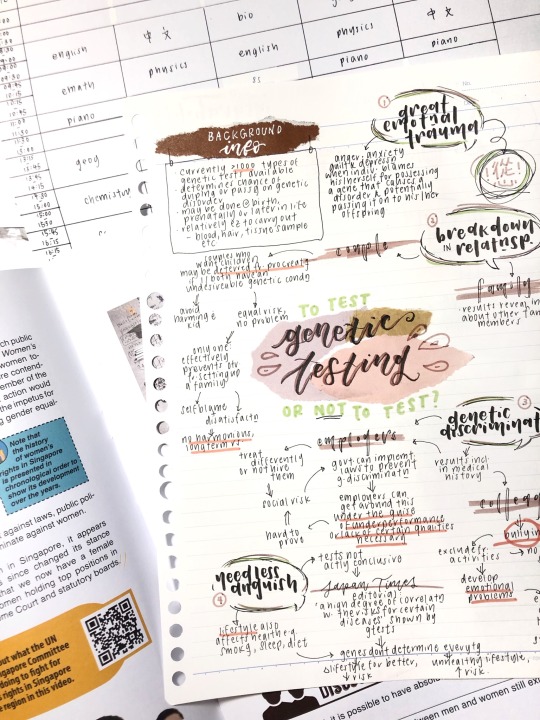 bio
中文
physics
中文
english
physics
english
piano
piano
emath
physics
piano
good
chemistry
BACKGROUND
info
· currently >1000 types of
genetic tests available
· determines chance of
dvlping or passg on genetic
disorder
· may be done @ birth,
prenatally or later in life
· relatively ez to carry out
- blood, hair, tissue sample
etc.
①
great
emotional
trauma
anger, anxiety
guilt & depressn
when indiv. blames
his/herself for possessing
a gene that causes a
disorder & potentially
passing it on to his/her
offspring
從!
②
breakdown
IN relatnsp.
couple
couples who
want children
may be deterred fr. procreatg
if 1/both have an
undesireable genetic condn
family
results reveal in
about other fa
members
avoid
harming e
kid
equal risk,
no problem
only one:
effectively
prevents
to setting up
a family
self blame
dissatisfactn
no harmonious,
longterm r/s
TO TEST
genetic
testing
OR NOT TO TEST?
③
genetic
discriminat
employers
treat
differently
or not hire
them
govt. can implemt.
laws to prevent
g. discriminatn
results incl.
in medical
history
social risk
employers can
get around this
under the guise
of underperformance
or lack of certain qualities
necessary
hard to
prove
colleag
bullyin
exclude fr.
activities
no
develop
emotional
problems
④
needless
anguish
tests not
actly conclusive
Japan Times
editorial
"a high degree of correlatn
w. the risks for certain
diseases" shown by
gtests
lifestyle also
affects health e.g.
smokg, sleep, diet
genes don't determine everytg
lifestyle for better,
↓ risk
unhealthy lifestyle,
↑ risk
ch public
Women's
women to-
e contend-
ember of the
action would
he impetus for
g gender equal-
Note that
the history
of women's
rights in Singapore
is presented in
chronological order to
show its development
over the years.
against laws, public poli-
minate against women.
n in Singapore, it appears
s since changed its stance
hat we now have a female
omen holding top positions in
me Court and statutory boards.
out what the UN
ngapore Committee
doing to fight for
s rights in Singapore
e region in this video.
DISCU
it is possible to have absol
men and women still ex